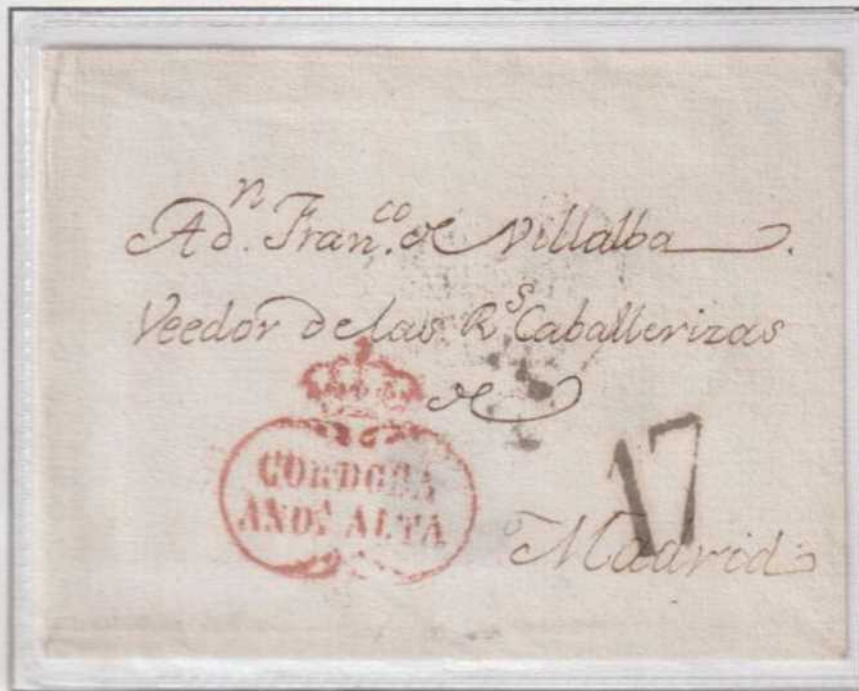 A Dⁿ. Franᶜᵒ. de Villalba
Veedor de las Rˢ Caballerizas
de
CORDOBA
ANDᴬ ALTA
17
Madrid